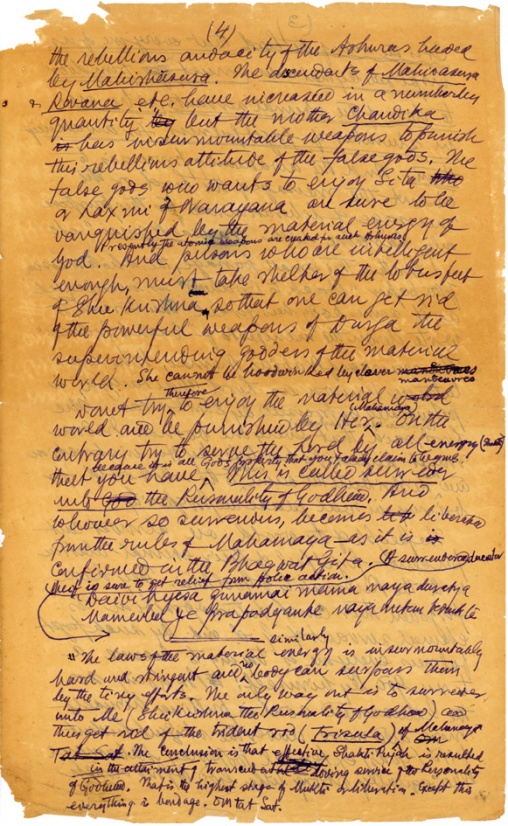 (4)
the rebellious audacity of the Ashuras headed
by Mahishasura. The descendants of Mahisasura
Ravana etc. have increased in a number by
quantity but the mother Chandika
has insurmountable weapons to punish
this rebellious attitude of the false gods. The
false gods who wants to enjoy Sita
or Laxmi of Narayana are sure to be
vanquished by the material energy of
Presently the atomic weapons are created for such Ashuras
God. And persons who are intelligent
enough, must take shelter of the lotus feet
of Shri Krishna, so that one can get rid
of the powerful weapons of Durga the
superintending goddess of the material
world. She cannot be hoodwinked by clever
manoeuvres
therefore
Don't try to enjoy the material
(Mahamaya)
world and be punished by Her. On the
contrary try to serve the Lord by all energy
because it is all God's property that you falsely claim to be yours.
that you have. This is called surrender
unto the Personality of Godhead. And
whoever so surrenders, becomes liberated
from the rules of Mahamaya as it is
confirmed in the Bhagwat Gita. (A surrendered
is sure to get relief from police action.
Daivi hyesa gunamai mama maya duratya
Mameba ye Prapadyante maya metam te
similarly
"The law of the material energy is insurmountably
hard and stringent and no body can surpass them
by the tiny efforts. The only way out is to surrender
unto Me (Shri Krishna the Personality of Godhead)
thus get rid of the trident rod (trisula) of Mahamaya
The conclusion is that effective Shakti Pujah is resulted
in the attainment of transcendental loving service of the Personality
of Godhead. That is the highest stage of Mukti or liberation. Except this
everything is bondage. Om Tat Sat.